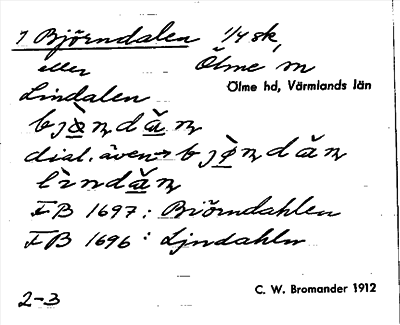 7 Björndalen 1/4 sk,
eller Ölme sn
Lindalen Ölme hd, Värmlands län
bjö̀ṇdăṇ
dial. även bjø̀ṇdăṇ
lìndăṇ
FB 1697: Biörndahlen
FB 1696: Ljndahln
2-3 C. W. Bromander 1912